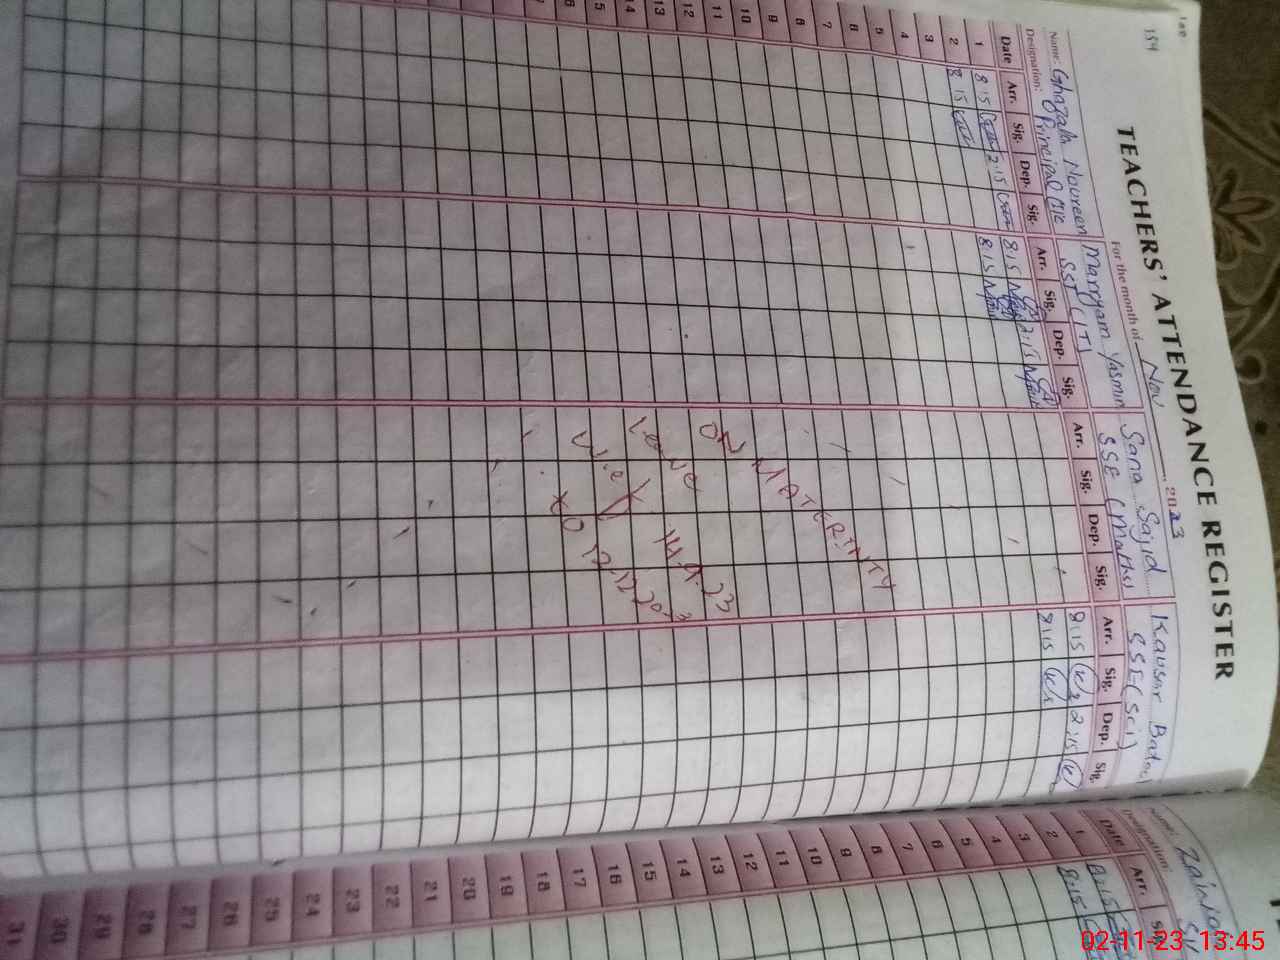 TEACHERS' ATTENDANCE REGISTER
For the month of Nov 2023
154
Name: Ghazala Noureen Marryam Yasmin Sana Sajid Kausar Batool
Designation: Principal I/C SST (IT) SSE (Maths) SSE (Sci)
Date Arr. Sig. Dep. Sig. Arr. Sig. Dep. Sig. Arr. Sig. Dep. Sig. Arr. Sig. Dep. Sig.
1 8:15 2:15 8:15 2:15 8:15 2:15
2 8:15 8:15 8:15
3
4
5
6
7
8
9
10
11
12
13
14
15
16
ON MATERNITY
leave 14.9.23
w.e.f
to 12.12.2023
Name: Zainab
Designation:
Date Arr. Sig.
1 8:15
2 8:15
3
4
5
6
7
8
9
10
11
12
13
14
15
16
17
18
19
20
21
22
23
24
25
26
27
28
29
30
31
02-11-23 13:45